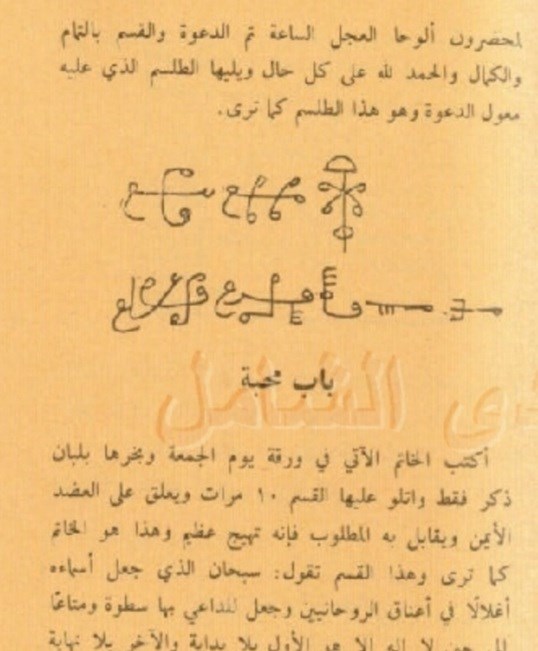 لمحضرون ألوحا العجل الساعة تم الدعوة والقسم بالتمام
والكمال والحمد لله على كل حال ويليها الطلسم الذي عليه
معول الدعوة وهو هذا الطلسم كما ترى.
باب محبة
أكتب الخاتم الآتي في ورقة يوم الجمعة وبخرها بلبان
ذكر فقط واتلو عليها القسم ١٠ مرات ويعلق على العضد
الأيمن ويقابل به المطلوب فإنه تهيج عظيم وهذا هو الخاتم
كما ترى وهذا القسم تقول: سبحان الذي جعل أسماءه
أغلالًا في أعناق الروحانيين وجعل للداعي بها سطوة ومتاعًا
إلى حين لا إله إلا هو الأول بلا بداية والآخر بلا نهاية